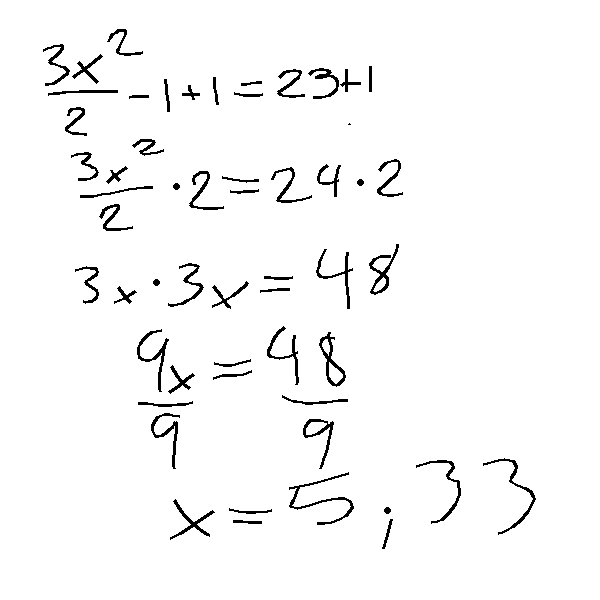 3x²/2 - 1 + 1 = 23 + 1
3x²/2 · 2 = 24 · 2
3x · 3x = 48
9x/9 = 48/9
x = 5;33